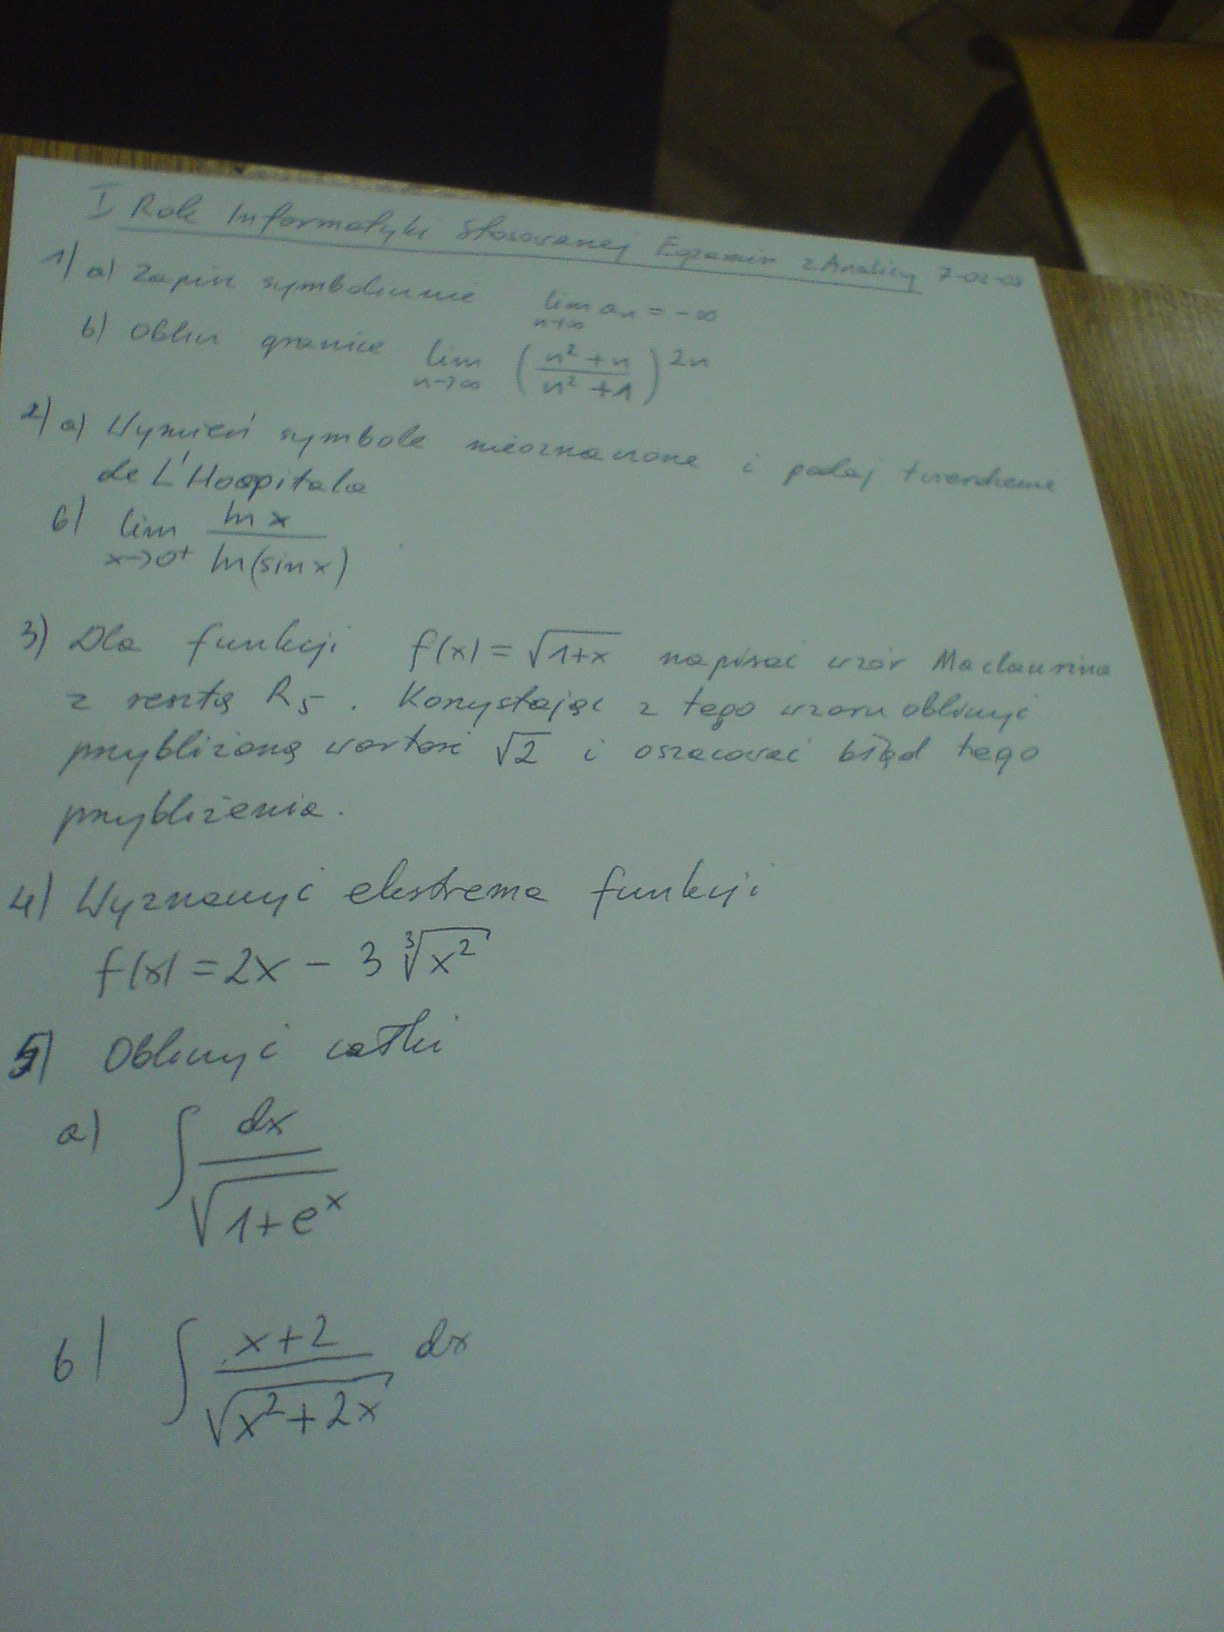 I Rok Informatyki Stosowanej Egzamin z Analizy 7-02-09
1) a) Zapisz symbolicznie lim n→∞ an = -∞
b) Oblicz granice lim n→∞ ( n² + n / n² + 1 ) 2n
2) a) Wymień symbole nieoznaczone i podaj twierdzenie
de L'Hospitala
b) lim x→0⁺ ln x / ln(sin x)
3) Dla funkcji f(x) = √1+x napisać wzór Maclaurina
z resztą R5. Korzystając z tego wzoru obliczyć
przybliżoną wartość √2 i oszacować błąd tego
przybliżenia.
4) Wyznaczyć ekstrema funkcji
f(x) = 2x - 3 ∛x²
5) Obliczyć całki
a) ∫ dx / √1+eˣ
b) ∫ x+2 / √x²+2x dx